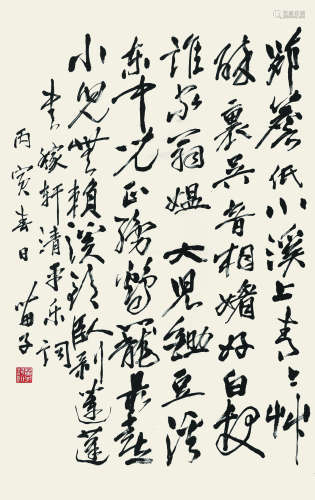 茆簷低小溪上青々艸
醉裏吴音相媚好白髮
誰家翁媪大兒鋤豆溪
东中兒正織鷄籠最喜
小兒無賴溪頭臥剥蓮蓬
书稼軒清平乐词
丙寅春日 苗子